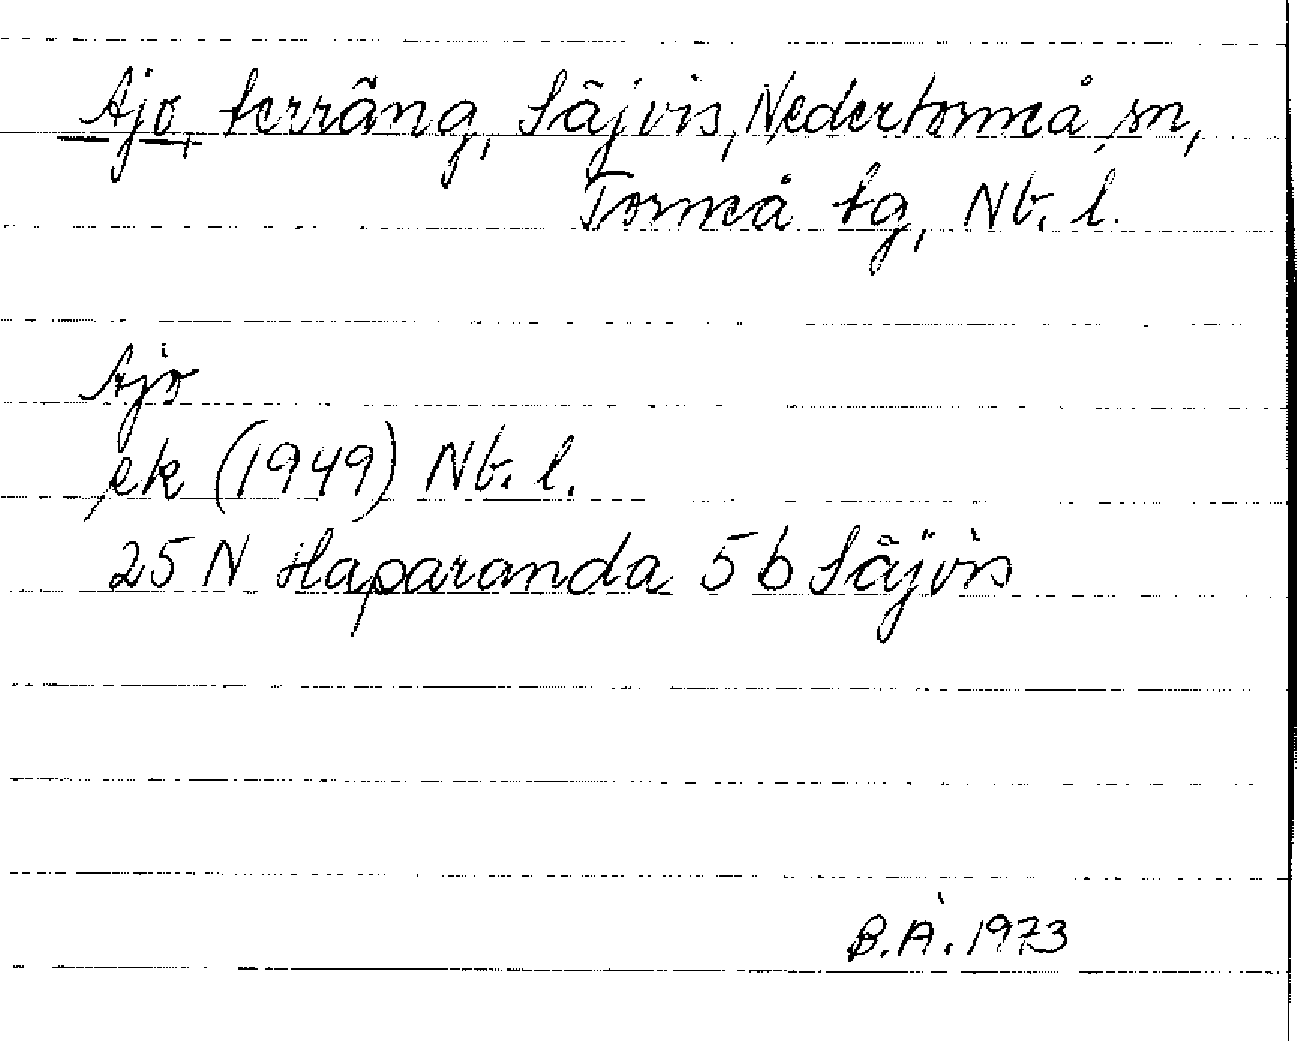 Ajo, terräng, Säjvis, Nedertorneå sn,
Torneå tg, Nb. l.
Ajo
ek (1949) Nb. l.
25 N Haparanda 5 b Säjvis
B.Å. 1973